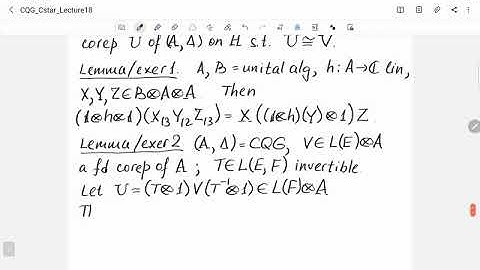 CQG_Cstar_Lecture18
corep U of (A,Δ) on H s.t. U≅V.
Lemma/exer 1. A, B = unital alg, h: A→ℂ lin,
X,Y,Z∈B⊗A⊗A. Then
(1⊗h⊗1)(X₁₃Y₁₂Z₁₃) = X((1⊗h)(Y)⊗1)Z
Lemma/exer 2 (A,Δ)=CQG, V∈L(E)⊗A
a fd corep of A ; T∈L(E,F) invertible.
Let U=(T⊗1)V(T⁻¹⊗1)∈L(F)⊗A
Tl